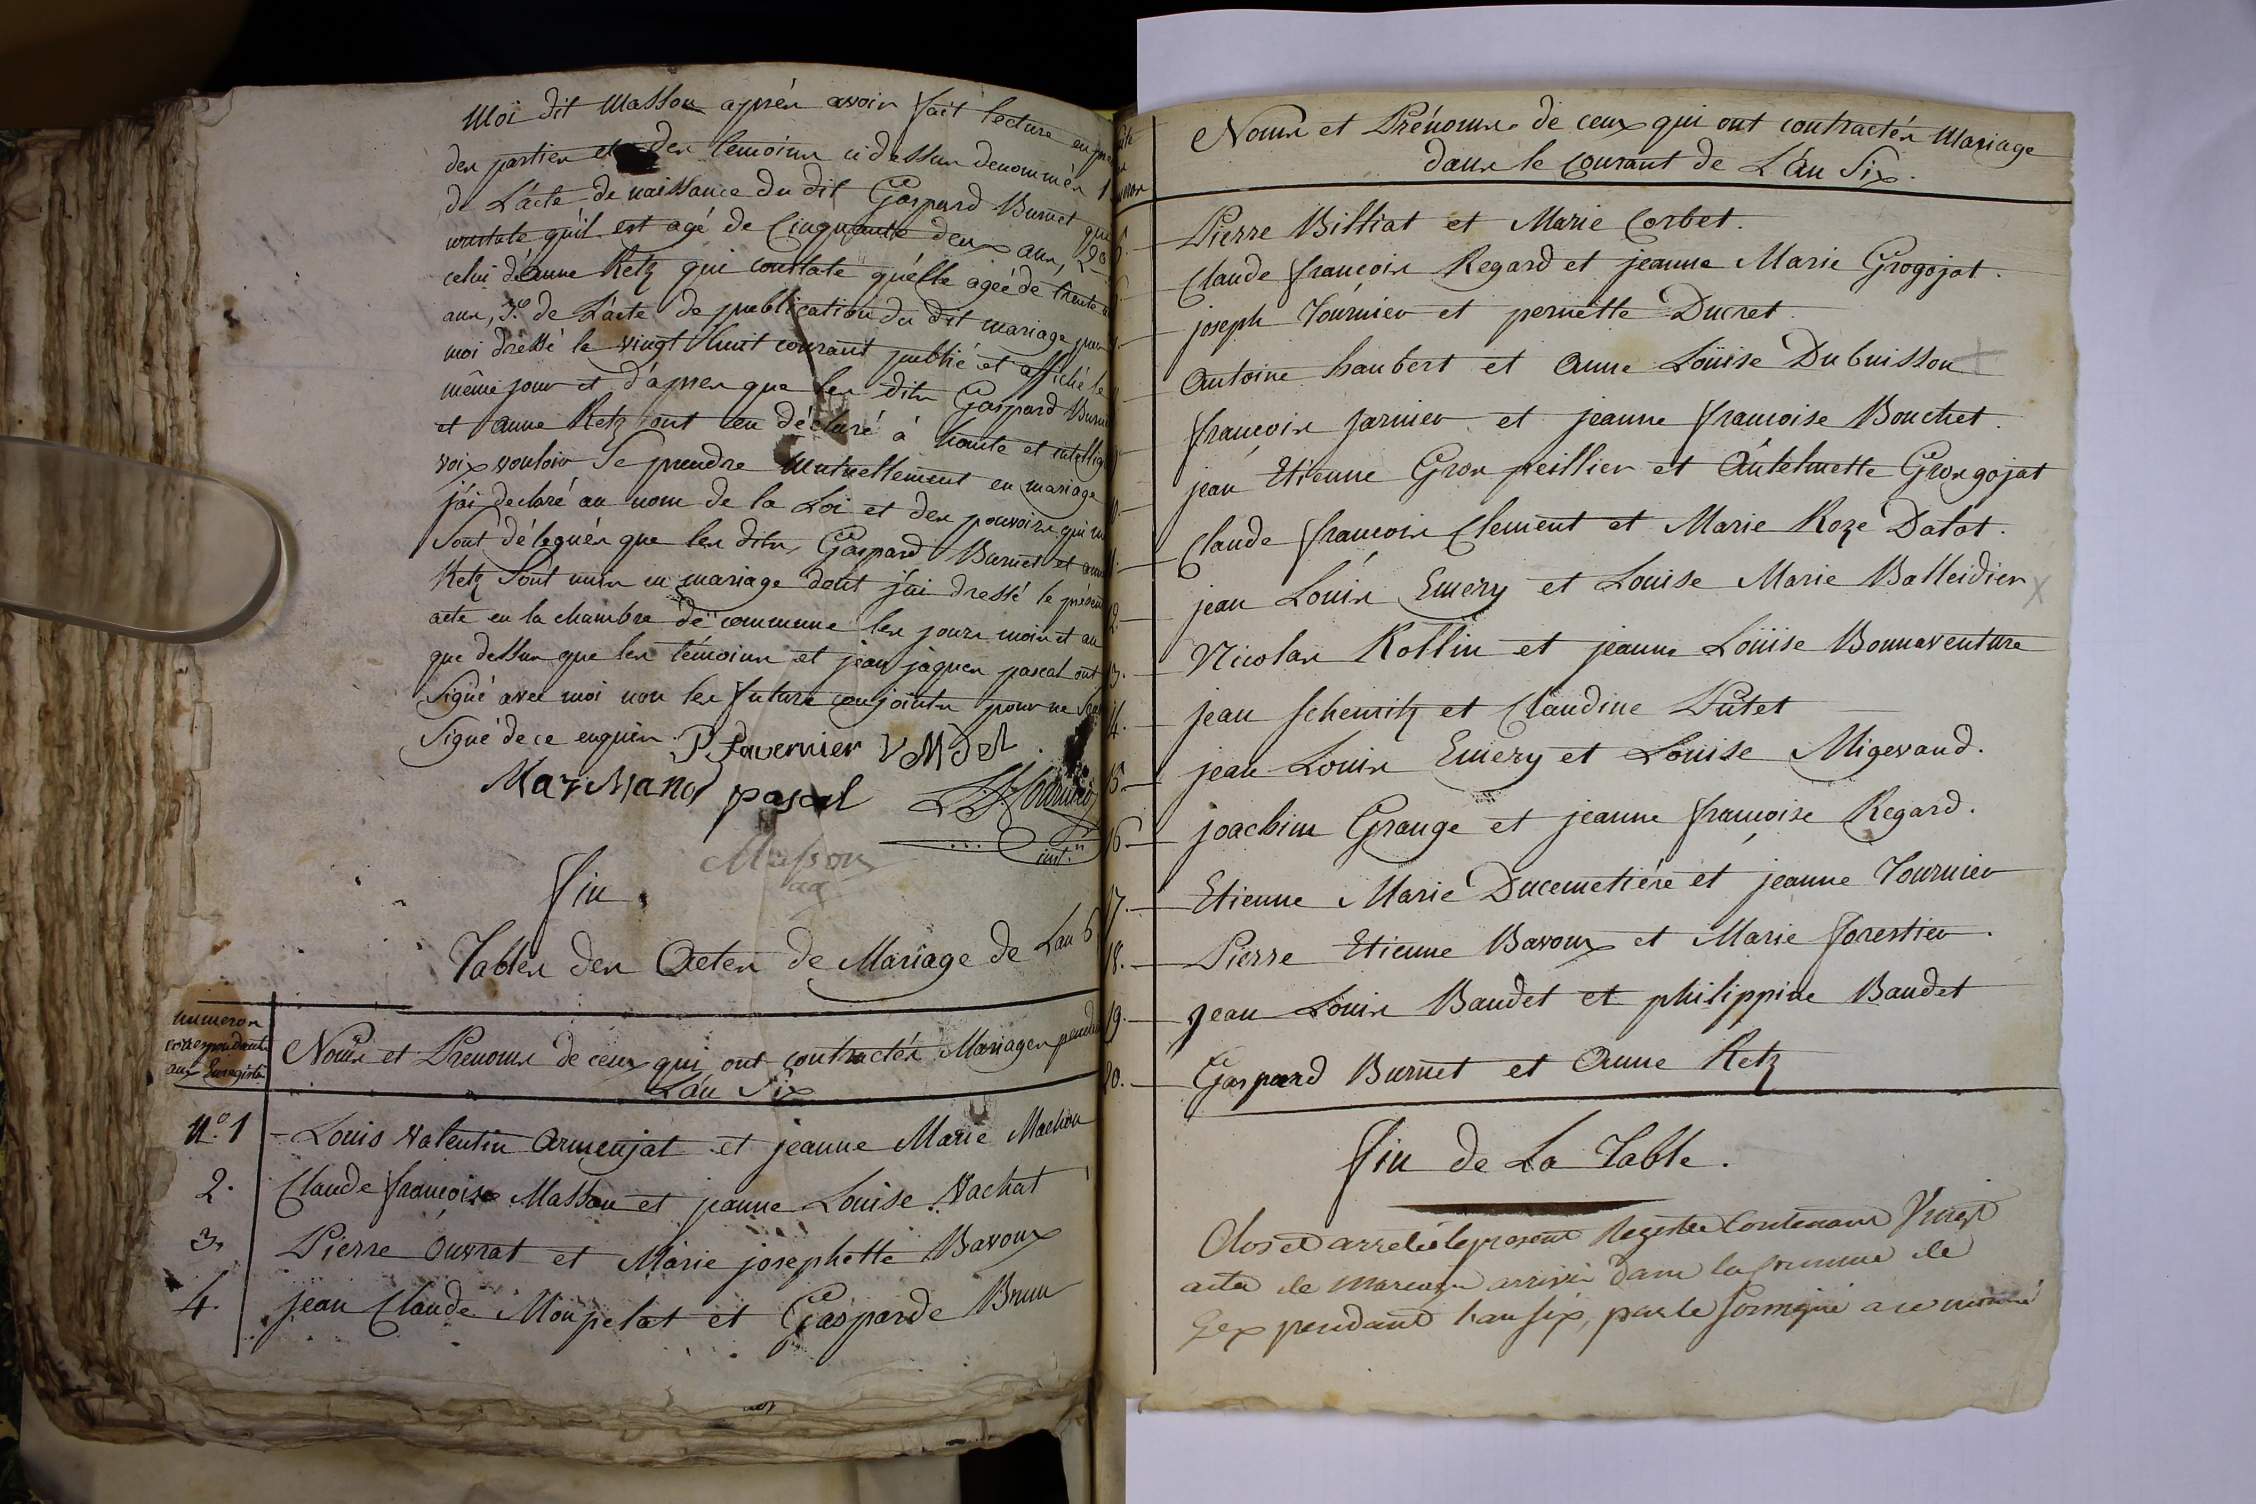 Moi dit Masson aprés avoir fait lecture en
des parties et des temoins cidessus denommés 1°
de L'acte de naissance du dit Gaspard Burnet que
constate qu'il est agé de Cinquante deux ans, 2°
celui d'anne Retz qui constate qu'elle agée de trente
ans, 3.° de L'acte de publication du dit mariage par
moi dressé le vingt huit courant publié et affiché le
même jour et d'aprés que les dits Gaspard Burnet
et anne Retz ont eu déclaré á haute et intellig
voix vouloir Se prendre Mutuellement en mariage
j'ai declaré au nom de la Loi et des pouvoirs qui m
Sont délégués que les dits, Gaspard Burnet et anne
Retz Sont unis en mariage dont j'ai dressé le présent
acte en la chambre de commune les jours mois et an
que dessus que les témoins et jean jaques pascal ont
Signé avec moi non les futurs conjoints pour ne
Signé de ce enquis. P Favernier VMDel
MarMand pascal
Masson
aa
fin.
Tables des Actes de Mariage de Lan 6
numeros
correspondants
aux Enregistr
Noms et Prenoms de ceux qui ont contractés Mariages pendant
L'an Six
N.° 1 Louis Valentin Armenjat et jeanne Marie Machon
2. Claude françoise Masson et jeanne Louise Vachat
3. Pierre Ouvrat et Marie josephette Bavoux
4. jean Claude Monpelat et Gasparde Brun
Noms et Prénoms de ceux qui ont contractés Mariage
dans le courant de L'an Six.
Pierre Billiat et Marie Corbet.
Claude françois Regard et jeanne Marie Grogojat.
joseph Tournier et pernette Ducret.
Antoine haubert et Anne Loüise Dubuisson
françois jarnier et jeanne françoise Bouchet.
jean Etienne Gros peillier et Antelmette Grosgojat
11. Claude françois Clement et Marie Roze Datot.
12. jean Louis Emery et Louise Marie Balleidier
13. Nicolas Rollin et jeanne Loüise Bonnaventure
14. jean Schemitz et Claudine Putet
15. jean Louis Emery et Louise Migevand.
16. joachim Grange et jeanne françoise Regard.
17. Etienne Marie Ducemetiére et jeanne Tournier
18. Pierre Etienne Bavoux et Marie forestier.
19. Jean Louis Baudet et philippine Baudet
20. Gaspard Burnet et Anne Retz
fin de La Table.
Clos et arreté le present Registre Contenant Vingt
actes de mariages arrivés dans la Commune de
Gex pendant l'an six, par le soussigné a ce nommé